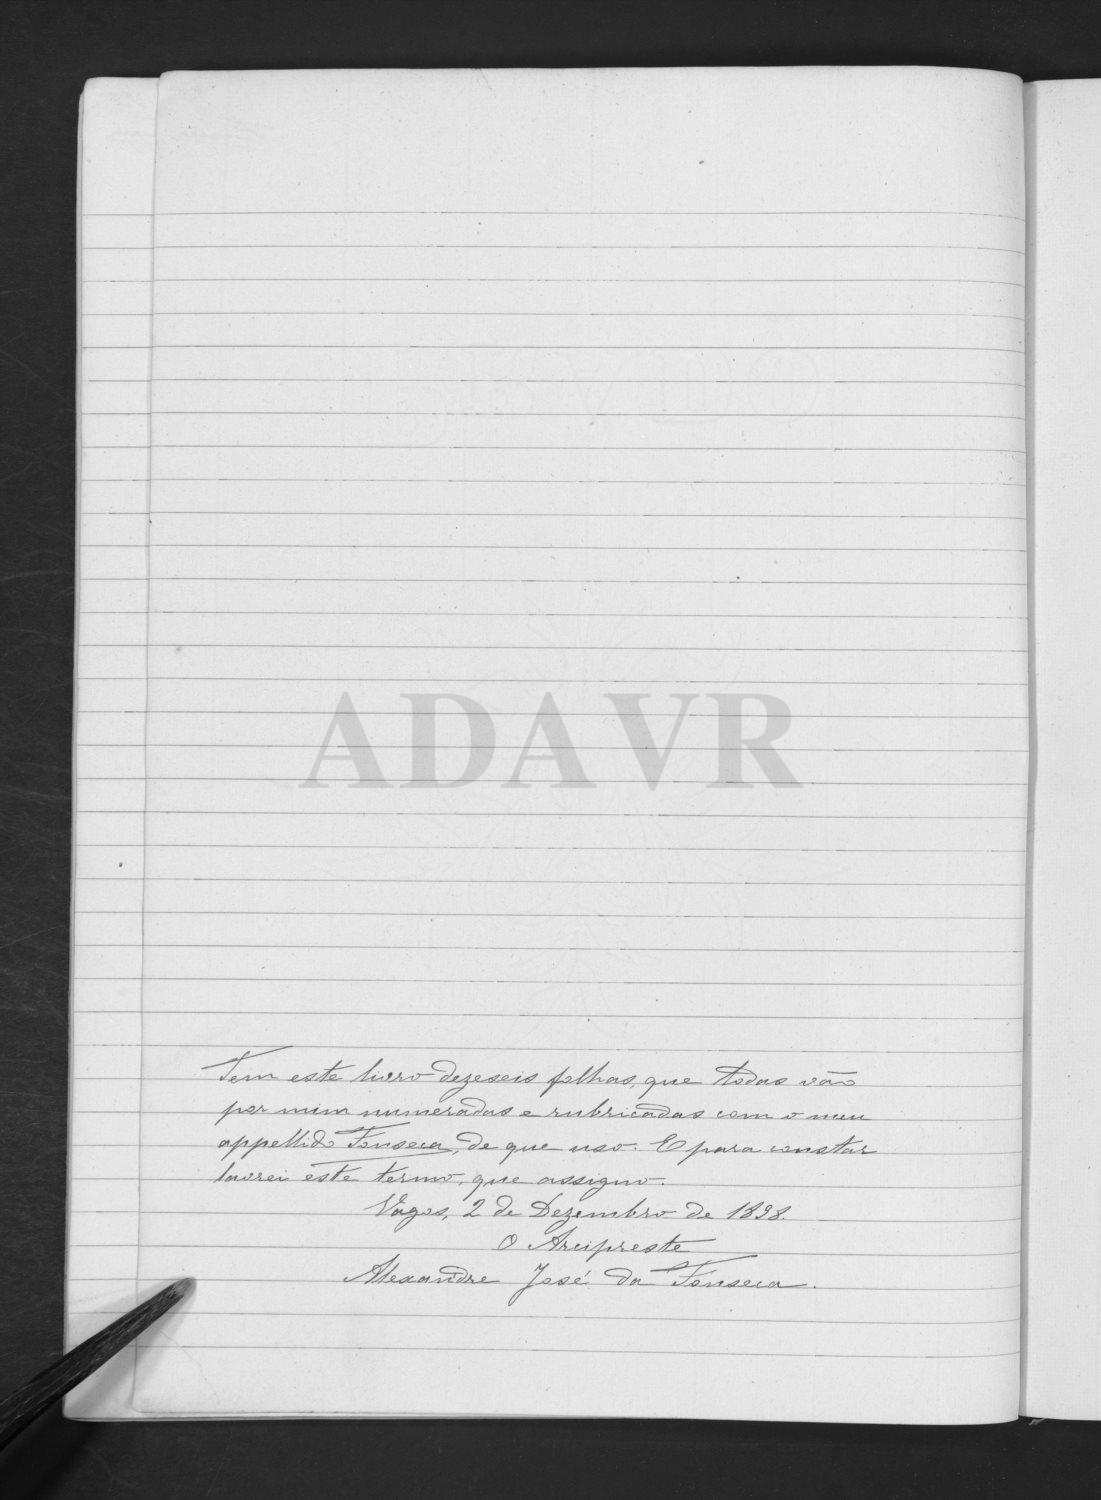 ADAVR
Tem este livro dezeseis folhas, que todas vão
por mim numeradas e rubricadas com o meu
appellido Fonseca, de que uso. E para constar
lavrei este termo, que assigno.
Vagos, 2 de Dezembro de 1898.
O Arcipreste
Alexandre José da Fonseca.